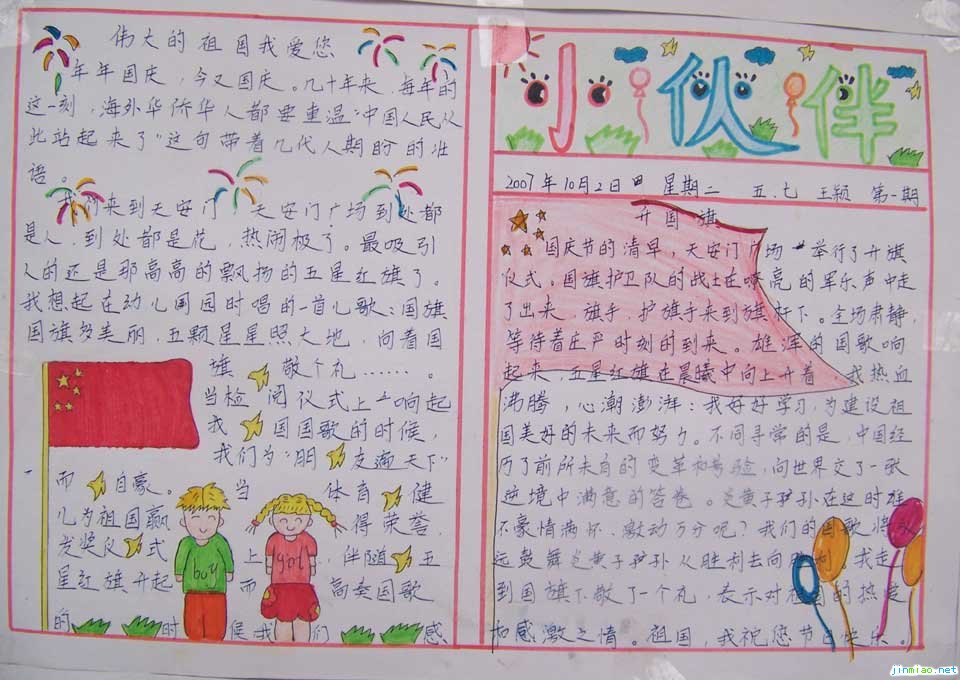 伟大的祖国我爱您
年年国庆，今又国庆。几十年来，每年的
这一刻，海外华侨华人都要重温"中国人民从
此站起来了"这句带着几代人期盼的的
语。
我们来到天安门 天安门广场到处都
是人，到处都是花，热闹极了。最吸引
人的还是那高高的飘扬的五星红旗了
我想起在幼儿园园时唱的一首儿歌：国旗
国旗多美丽，五颗星星照大地，向着国
旗 敬个礼……。
当检阅仪式上一响起
我 国国歌的时候，
我们为"朋友遍天下"
而 自豪。 当 体育 健
儿为祖国赢 得荣誉，
发奖仪式 上，伴随 五
星红旗升起 而 高奏国歌
的 时候我们 感
boy
girl
小伙伴
2007年10月2日 星期二 五.七 王颖 第一期
升国旗
国庆节的清早，天安门广场 举行了升旗
仪式。国旗护卫队的战士在嘹亮的军乐声中走
了出来，旗手，护旗手来到旗杆下。全场肃静，
等待着庄严时刻的到来。雄浑的国歌响
起来，五星红旗在晨曦中向上升着 我热血
沸腾，心潮澎湃：我好好学习，为建设祖
国美好的未来而努力。不同寻常的是，中国经
历了前所未有的变革和考验，向世界交了一张
逆境中满意的答卷。炎黄子孙在这时难
不豪情满怀、激动万分呢？我们的国歌将永
远鼓舞炎黄子孙从胜利去向胜利！我走
到国旗下敬了一个礼，表示对祖国的热爱
和感激之情。祖国，我祝您节日快乐。
jinmiao.net